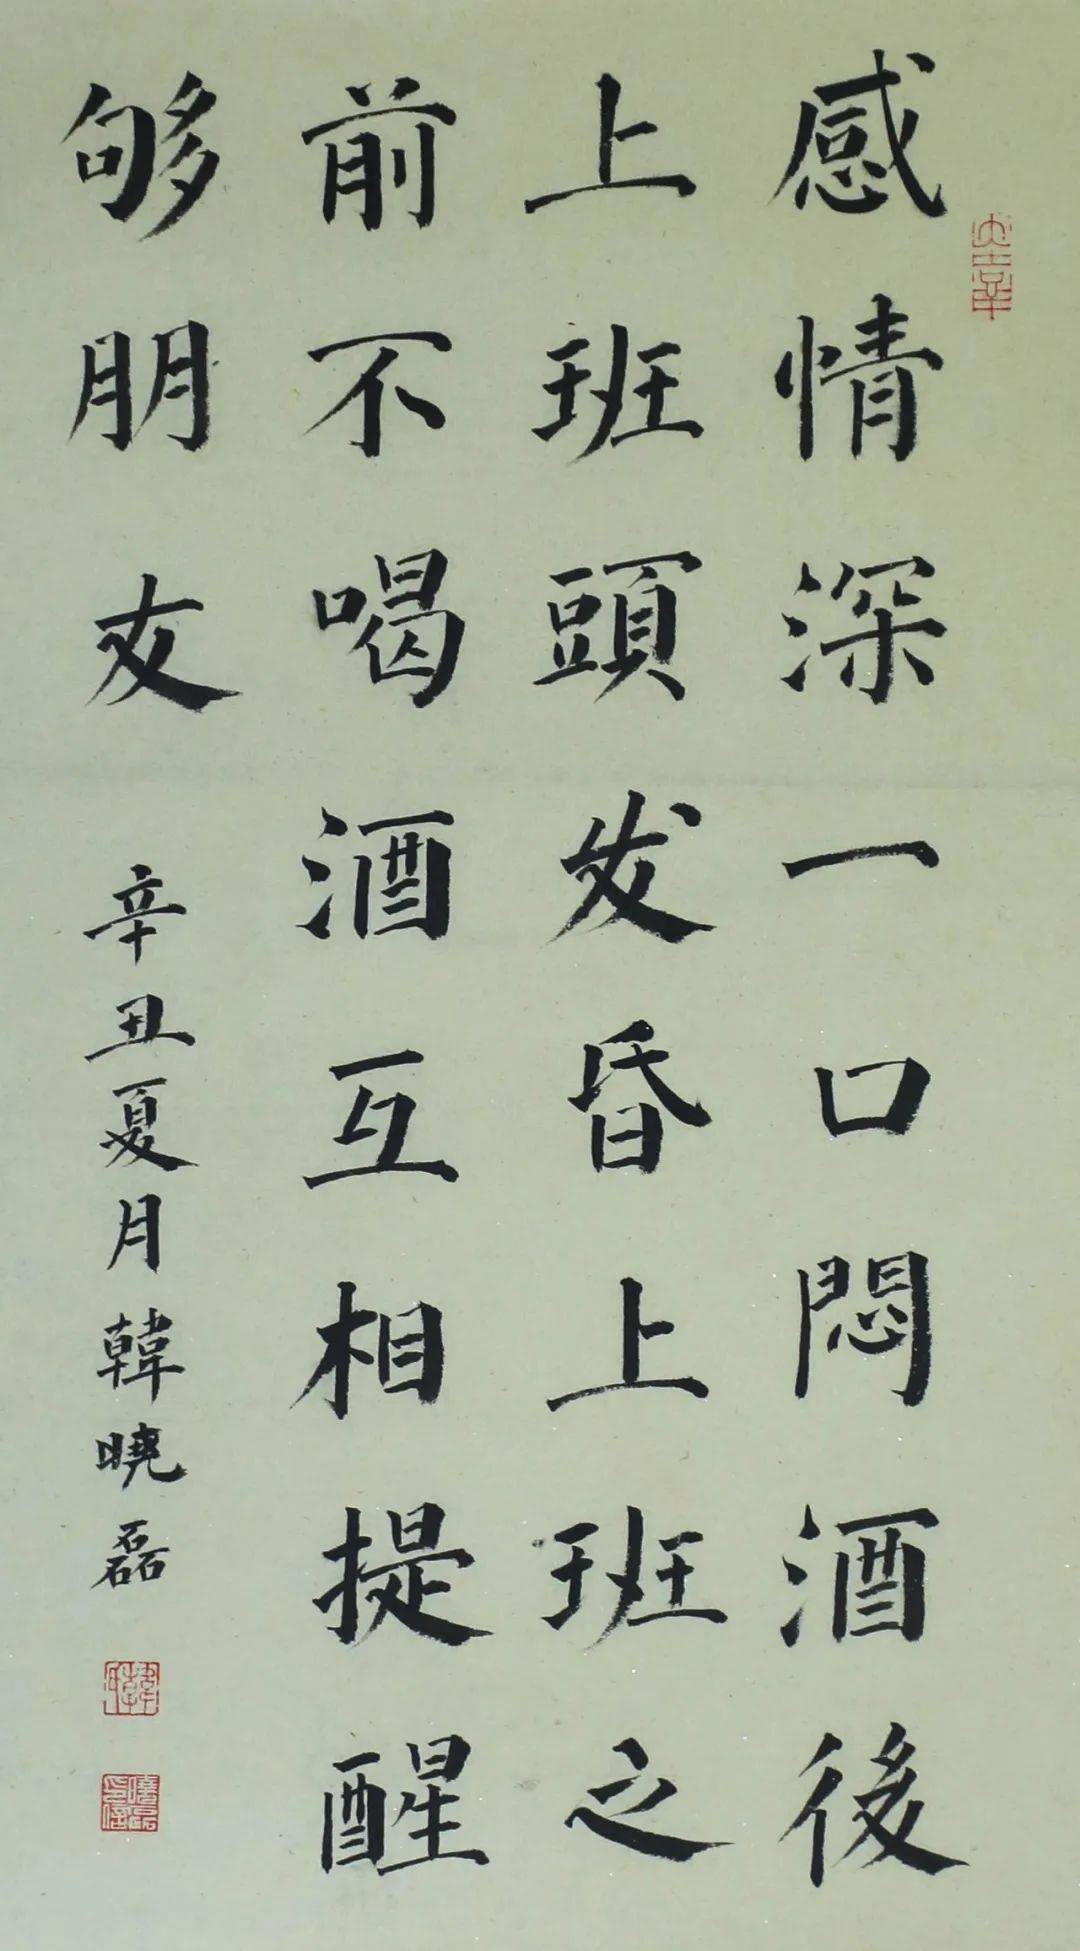 感情深一口悶酒後
上班頭发昏上班之
前不喝酒互相提醒
够朋友
辛丑夏月韓曉磊